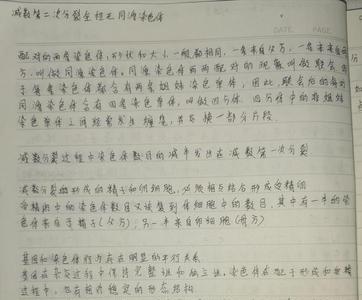 减数第二次分裂全程无同源染色体
DATE PAGE
配对的两条染色体,形状和大小一般都相同,一条来自父方,一条来自母
方,叫做同源染色体。同源染色体两两配对的现象叫做联会
于每条染色体都含有两条姐妹染色单体,因此,联会后的每对
同源染色体含有四条染色单体,叫做四分体。四分体中的非姐妹
染色单体之间经常发生缠绕,并交换一部分片段
减数分裂过程中染色体数目的减半发生在减数第一次分裂
减数分裂形成的精子和卵细胞,必须相互结合形成受精卵
受精卵中的染色体数目又恢复到体细胞中的数目,其中有一半的染
色体来自于精子(父方),另一半来自卵细胞(母方)
基因和染色体行为存在明显的平行关系
基因在杂交过程中保持完整性和独立性。染色体在配子形成和受精
过程中,也有相对稳定的形态结构